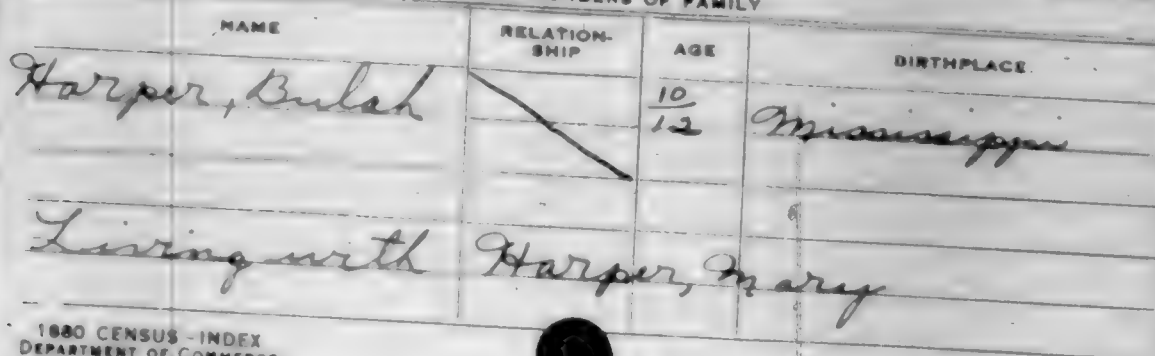 OF FAMILY
NAME RELATION-SHIP AGE BIRTHPLACE
Harper, Bulah 10/12 Mississippi
Living with Harper, Mary
1880 CENSUS-INDEX
DEPARTMENT OF COMMERCE